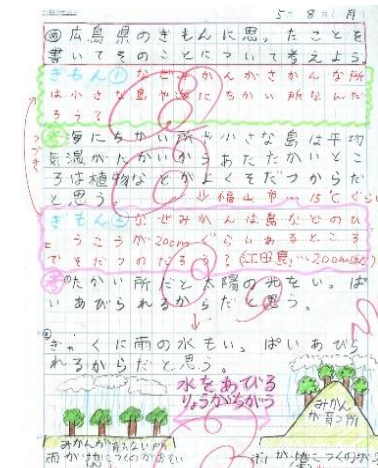 5月8日(月)
め 広島県のぎもんに思ったことを
書いてそのことについて考えよう。
ぎもん① なぜみかんがさかんな所
は小さな島や海にちかい所なんだ
ろう?
考 海にちかい所や小さな島は平均
気温がたかいからあたたかいとこ
ろは植物などがよくそだつからだ
と思う。
福山市…15℃ぐらい
つづき
ぎもん② なぜみかんは島などのひ
ょうこうが200mぐらいあるところ
でそだつのだろう?(江田島…200m
考 たかい所だと太陽の光をいっぱ
いあびられるからだと思う。
ぎゃくに雨の水もいっぱいあびら
れるからだと思う。
水をあびる
りょうがちがう
みかんが育たない所
みかん
が育つ所
雨が地につくのがおそい
雨が地につくのが